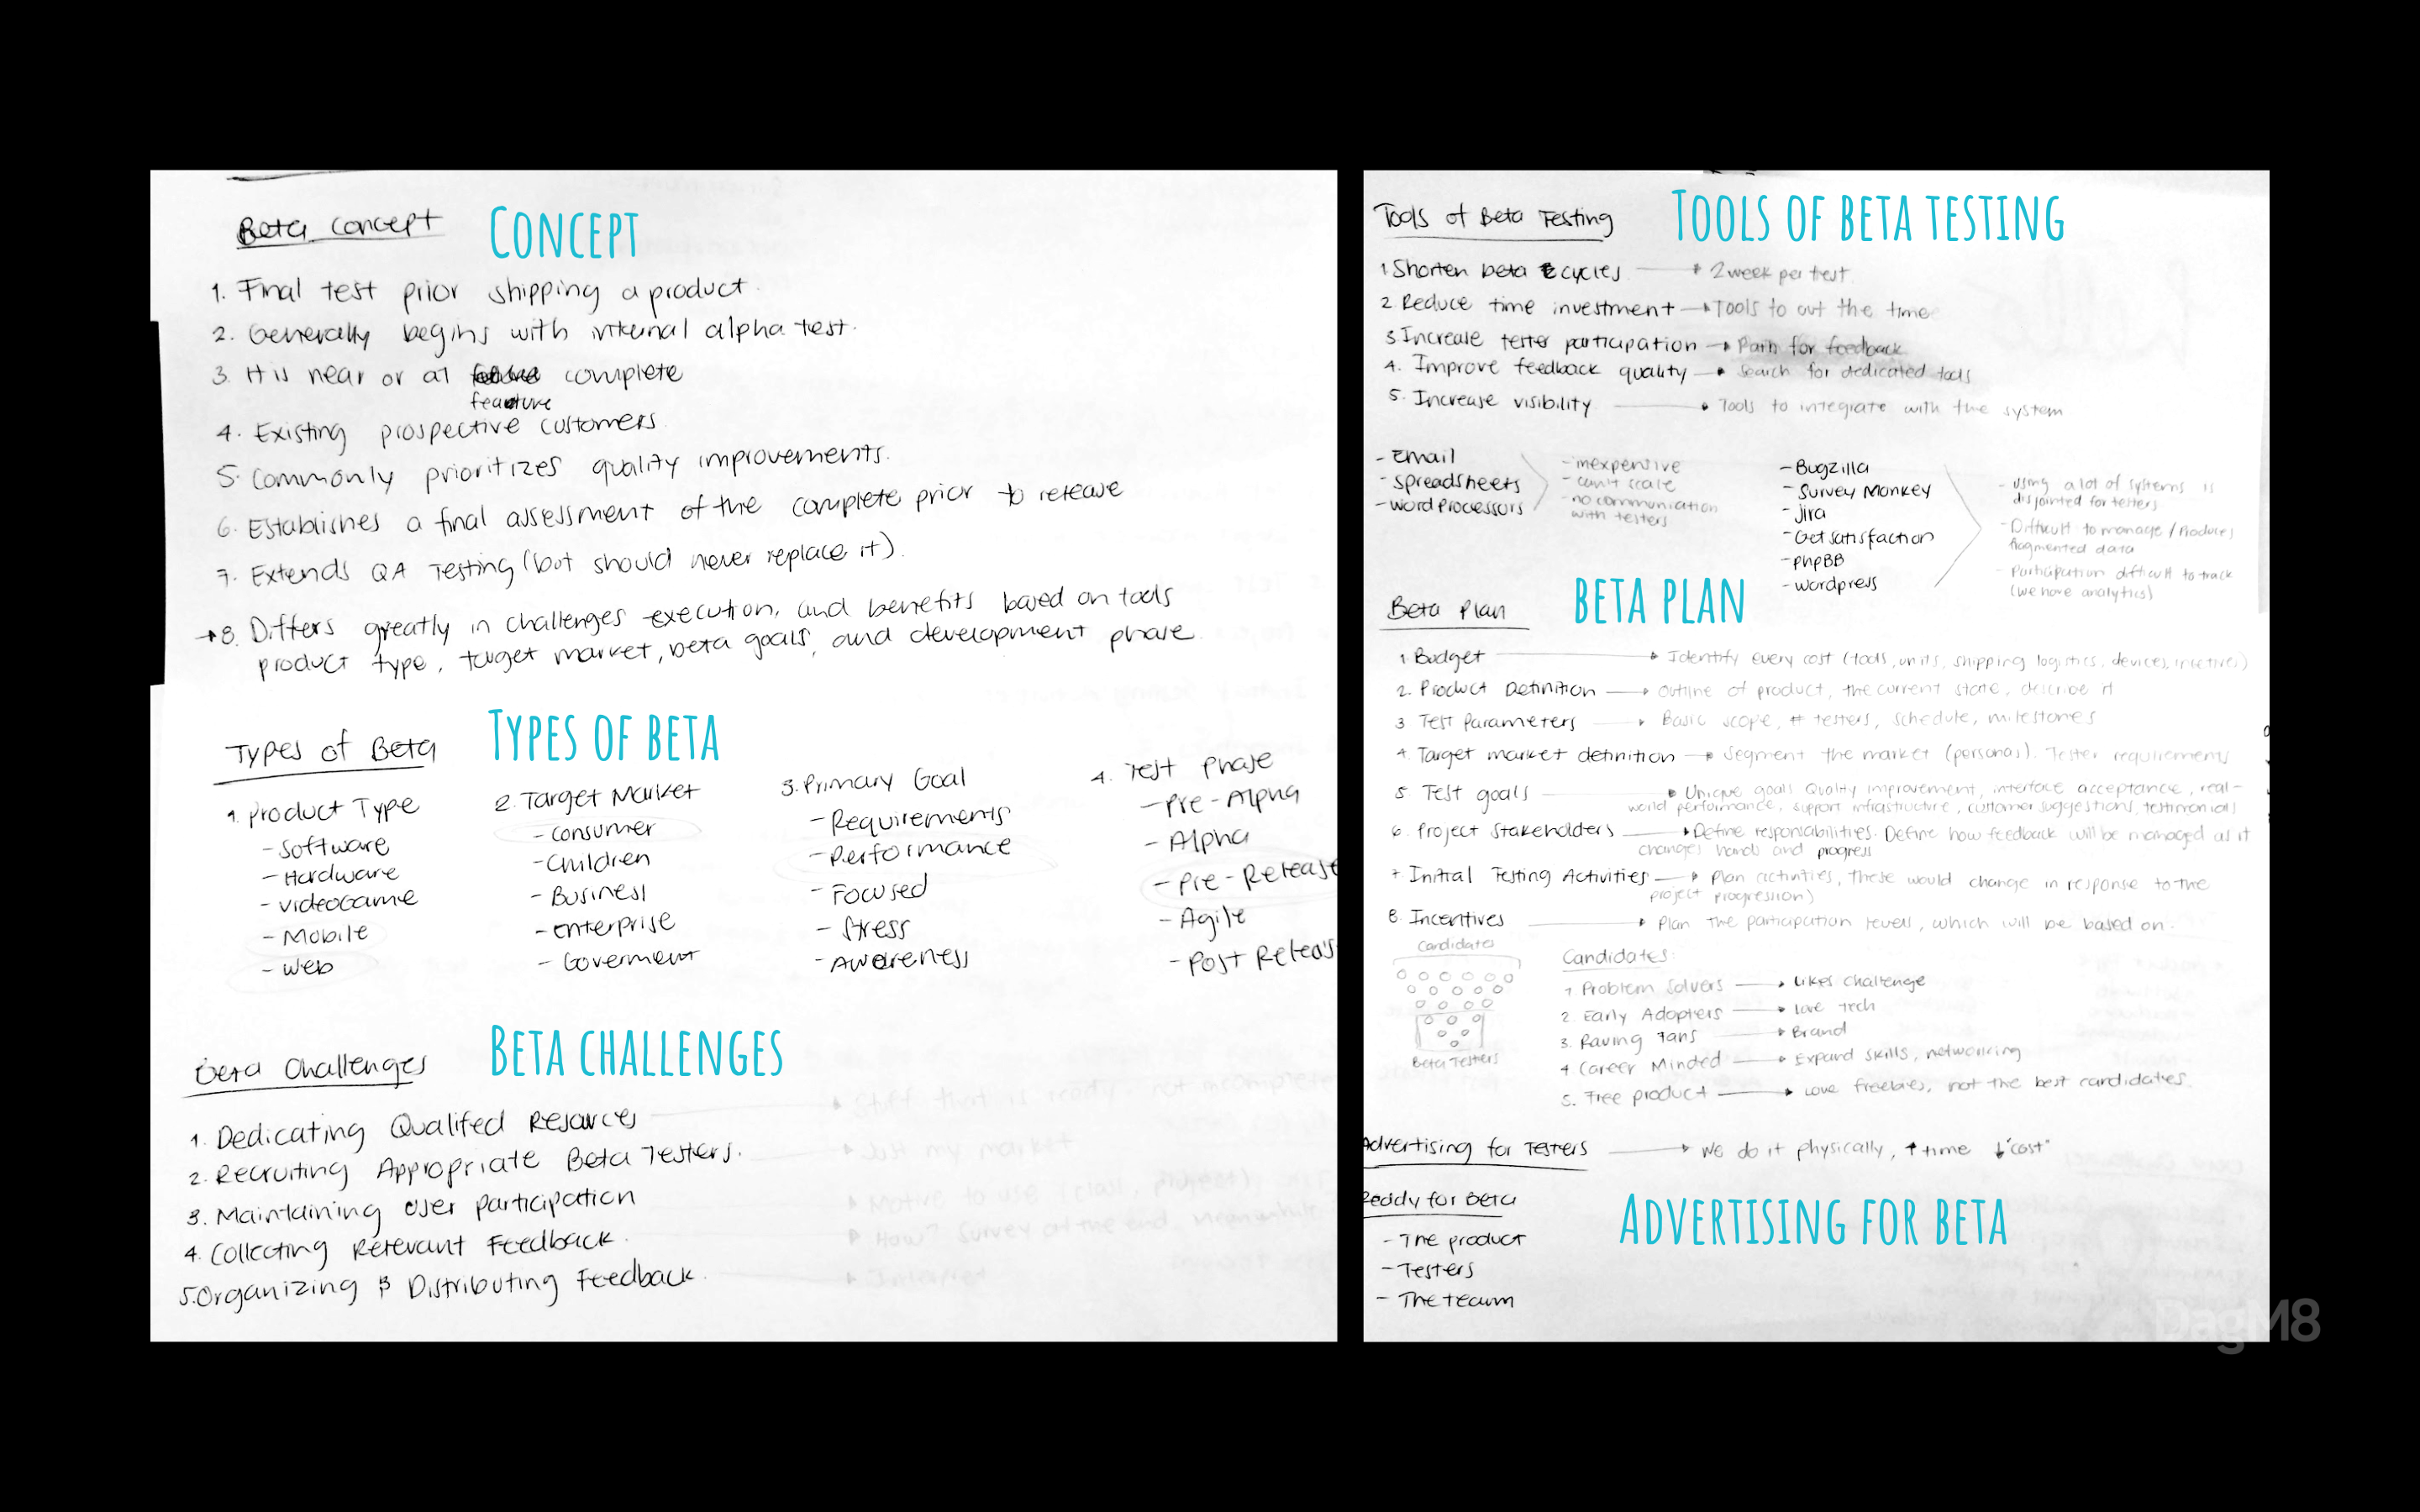 Beta Concept
CONCEPT
1. Final test prior shipping a product.
2. Generally begins with internal alpha test.
3. It is near or at complete
feature
4. Existing prospective customers
5. Commonly prioritizes quality improvements.
6. Establishes a final assessment of the complete prior to release
7. Extends QA Testing (but should never replace it).
→8. Differs greatly in challenges execution, and benefits based on tools
product type, target market, beta goals, and development phase
Types of Beta
TYPES OF BETA
1. Product Type
- Software
- Hardware
- videoGame
- Mobile
- Web
2. Target Market
- Consumer
- Children
- Business
- Enterprise
- Goverment
3. Primary Goal
- Requirements
- Performance
- Focused
- Stress
- Awareness
4. Test Phase
- Pre-Alpha
- Alpha
- Pre-Release
- Agile
- Post Releas
Beta Challenges
BETA CHALLENGES
1. Dedicating Qualifed Resources
2. Recruiting Appropriate Beta Testers.
3. Maintaining User participation
4. Collecting Relevant Feedback.
5. Organizing & Distributing Feedback.
Tools of Beta Testing
TOOLS OF BETA TESTING
1 Shorten beta cycles → 2 week per test.
2. Reduce time investment → Tools to out the time
3 Increase tester participation → Path for feedback
4. Improve feedback quality → Search for dedicated tools
5. Increase visibility → Tools to integrate with the system
- Email
- Spreadsheets
- Word Processors
- inexpensive
- can't scale
- no communication
with testers
- Bugzilla
- Survey Monkey
- jira
- Get Satisfaction
- phpBB
- wordpress
- Using a lot of systems is
disjointed for testers
- Difficult to manage / Produces
fragmented data
- Participation difficult to track
(we have analytics)
Beta Plan
BETA PLAN
1. Budget → Identify every cost (tools, units, shipping logistics, devices,
2. Product Definition → Outline of product, the current state, describe it
3 Test Parameters → Basic scope, # testers, schedule, milestones
4. Target market definition → Segment the market (personas). Tester requirements
5 Test goals → Unique goals Quality improvement, interface acceptance, real-
world performance, support infrastructure, customer suggestions, testimonials
6. Project Stakeholders → Define responsabilities. Define how feedback will be managed as it
changes hands and progress
7 Initial Testing Activities → Plan activities, these would change in response to the
project progression)
8. Incentives → Plan the participation levels, which will be based on.
Candidates
Beta Testers
Candidates:
1 Problem Solvers → Likes challenge
2. Early Adopters → Love tech
3. Raving Fans → Brand
4 Career Minded → Expand skills, networking
5. Free product → Love freebies, not the best candidates.
Advertising for Testers → We do it physically, ↑ time ↓ "cost"
Ready for Beta
- The product
- Testers
- The team
ADVERTISING FOR BETA
DagM8